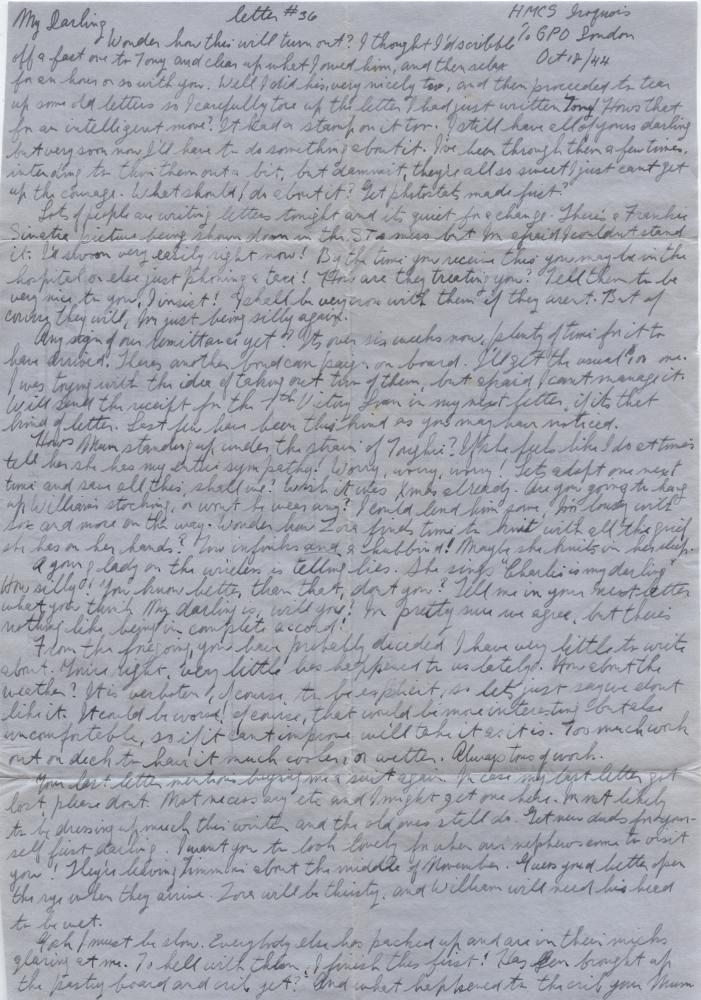 My Darling letter #36 HMCS Iroquois
Wonder how this will turn out? I thought I'd scribble ℅ GPO London
off a fast one to Tony and clear up what I owed him, and then relax Oct 18/44
for an hour or so with you. Well I did his, very nicely too, and then proceeded to tear
up some old letters so I carefully tore up the letter I had just written Tony. Hows that
for an intelligent move? It had a stamp on it too. I still have all of yours darling
but very soon now I'll have to do something about it. I've been through them a few times,
intending to thin them out a bit, but dammit, they're all so sweet I just cant get
up the courage. What should I do about it? Get photostats made first?
Lots of people are writing letters tonight and its quiet for a change. There's a Frankie
Sinatra picture being shown down in the mess but Im afraid I couldn't stand
it. I'd swoon very easily right now! By the time you receive this you may be in the
hospital or else just phoning a taxi! How are they treating you? Tell them to be
very nice to you, I insist! I shall be very cross with them if they arent. But of
course they will, Im just being silly again.
Any sign of our remittance yet? Its over six weeks now, plenty of time for it to
have arrived. Theres another bond campaign on board. I'll get the usual one.
I was toying with the idea of taking out two of them, but afraid I cant manage it.
Will send the receipt for the 7th Victory Loan in my next letter, if its that
kind of letter. Last few have been this kind as you may have noticed.
Hows Mum standing up under the strain of If she feels like I do at times
tell her she has my entire sympathy. Worry, worry, worry! Lets adopt one next
time and save all this, shall we? Wish it was Xmas already. Are you going to hang
up Williams stocking, or wont he wear any? I could lend him some, Im lousy with
sox and more on the way. Wonder how Zora finds time to knit with all the grief
she has on her hands? Two infinks and a hubbind! Maybe she knits in her sleep.
A young lady on the wireless is telling lies. She sings "Charlie is my darling"
How silly! You know better than that, dont you? Tell me in your next letter
what you think my darling is, will you? Im pretty sure we agree, but there's
nothing like being in complete accord!
From the foregoing, you have probably decided I have very little to write
about. You're right, very little has happened to us lately. How about the
weather? It is verboten, of course, to be explicit, so lets just say we dont
like it. It could be worse! Of course, that would be more interesting but also
uncomfortable, so if it cant improve will take it as it is. Too much work
out on deck to have it much cooler, or wetter. Always tons of work.
Your last letter mentions buying me a suit again. In case my last letter got
lost, please dont. Not necessary etc and I might get one here. Im not likely
to be dressing up much this winter and the old ones still do. Get new duds for your-
self first darling. I want you to look lovely for when our nephews come to visit
you! They're leaving Timmins about the middle of November. Guess you'd better open
the rye when they arrive. Zora will be thirsty, and William will need his head
to be wet.
Gosh I must be slow. Everybody else has packed up and are in their micks
glaring at me. To hell with them, I finish this first! Has brought up
the pastry board and crib yet? And what happened to the crib your Mum